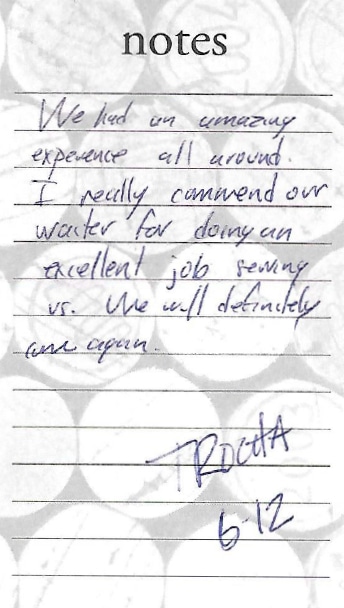 notes
We had an amazing
experience all around.
I really commend our
waiter for doing an
excellent job serving
us. We will definitely
come again.
TROCHA
6-12